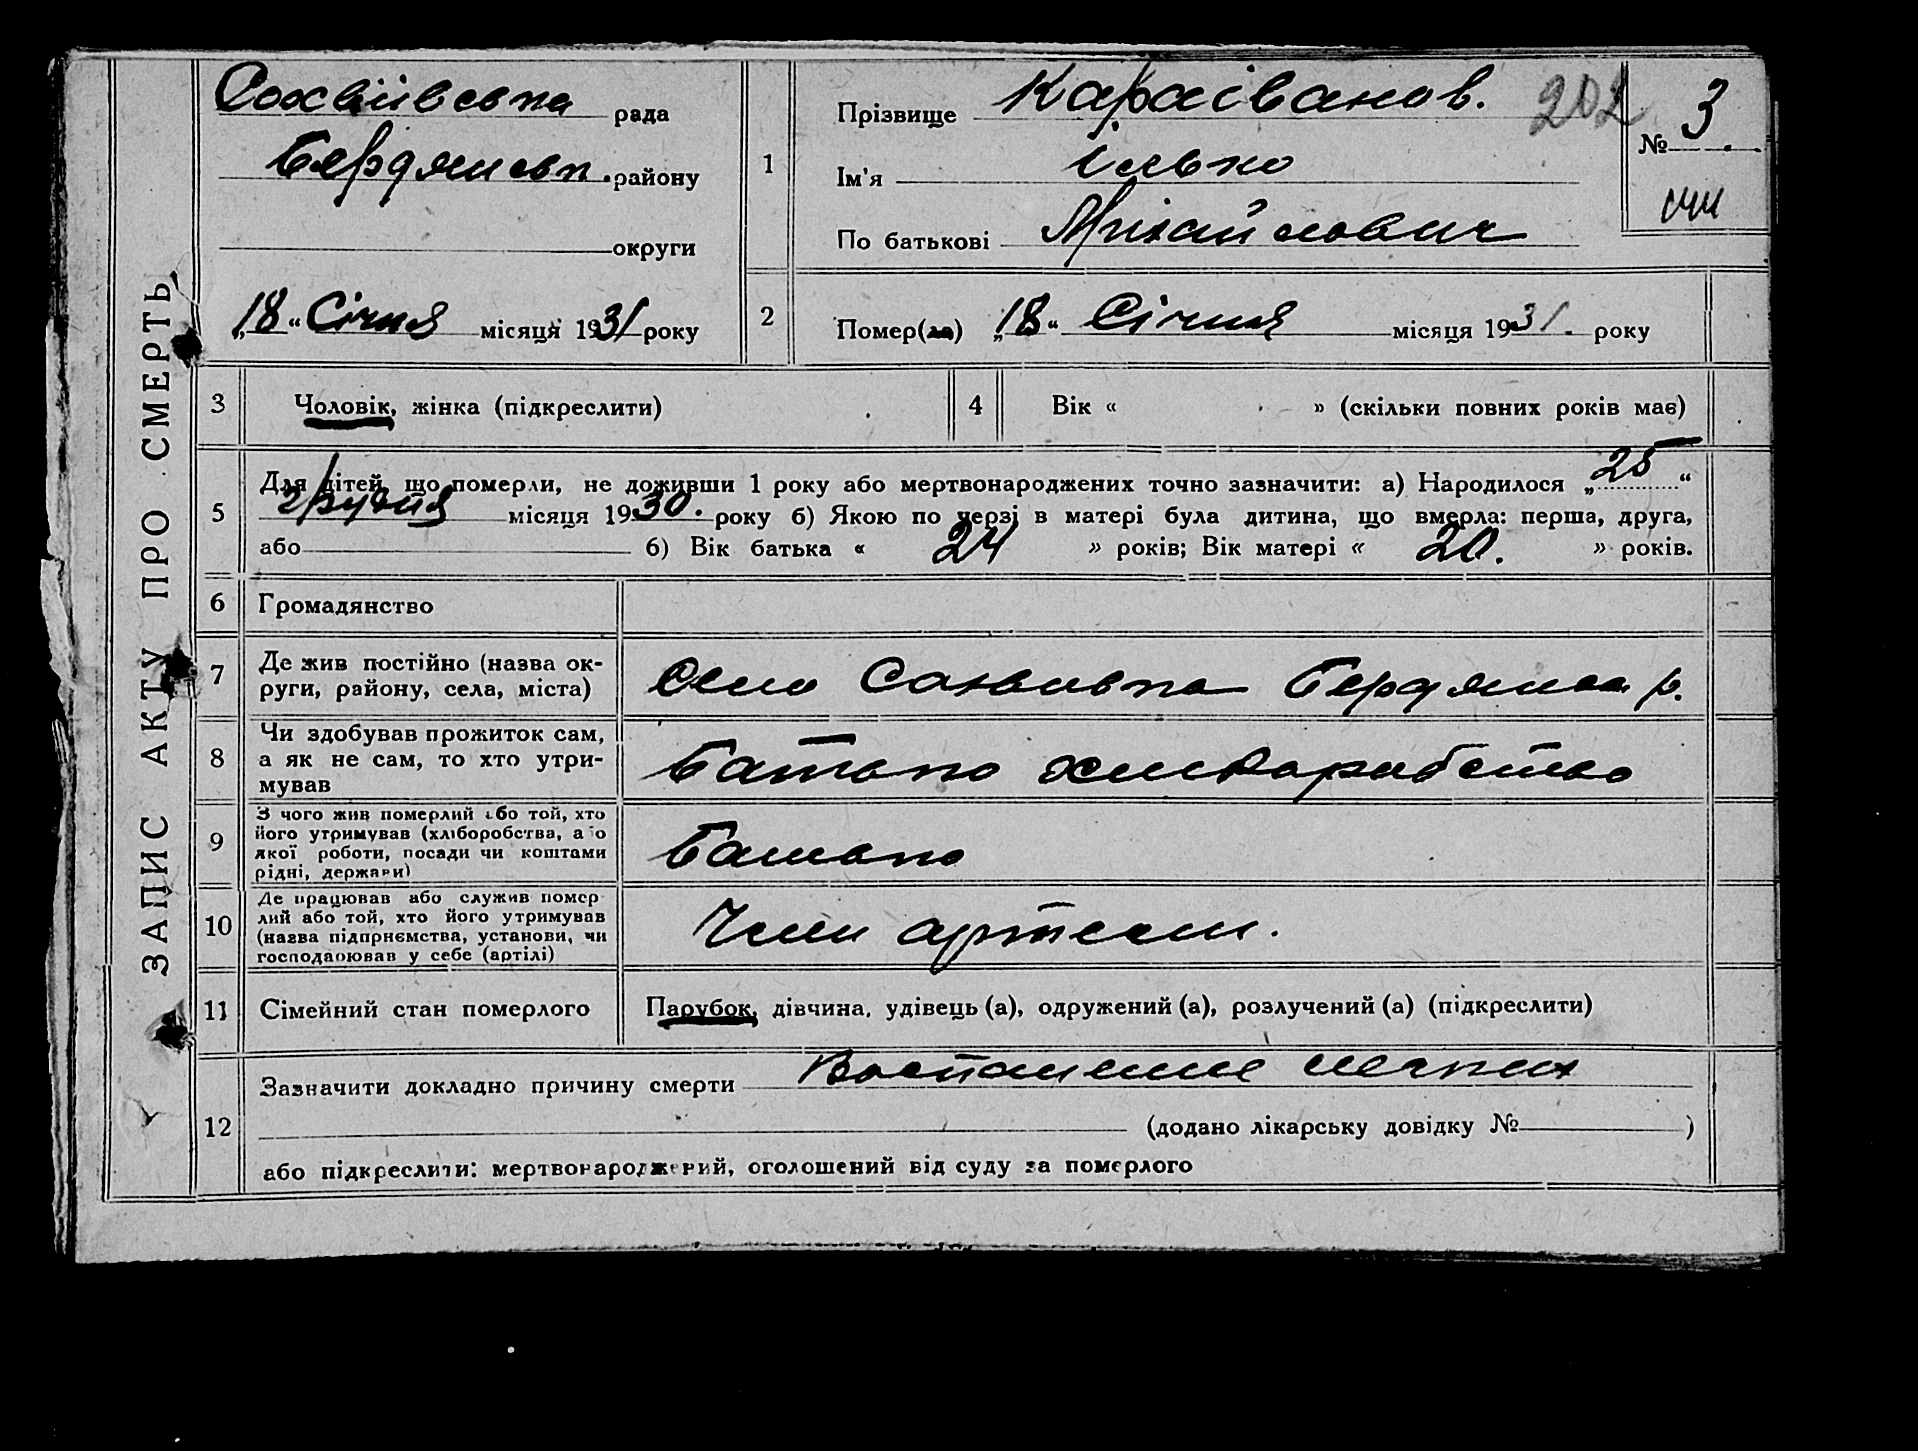 ЗАПИС АКТУ ПРО СМЕРТЬ
Сохвіівська рада
Бердянськ. району
округи
„18“ Січня місяця 1931 року
1
Прізвище Караіванов.
202
№ 3
Ім'я Ілько
По батькові Михайлович
2
Помер(ла) „18“ Січня місяця 1931. року
3 Чоловік, жінка (підкреслити)
4 Вік « » (скільки повних років має)
5
Для дітей, що померли, не доживши 1 року або мертвонароджених точно зазначити: а) Народилося „25“
грудня місяця 1930. року б) Якою по черзі в матері була дитина, що вмерла: перша, друга,
або б) Вік батька « 24 » років; Вік матері « 20. » років.
6 Громадянство
7 Де жив постійно (назва ок-
руги, району, села, міста)
Село Сохвиівка Бердянськ р.
8 Чи здобував прожиток сам,
а як не сам, то хто утри-
мував
Батько
9 З чого жив померлий або той, хто
його утримував (хліборобства, або
якої роботи, посади чи коштами
рідні, держави)
Батько
10 Де працював або служив помер
лий або той, хто його утримував
(назва підприємства, установи, чи
господарював у себе (артілі)
Член артели.
11 Сімейний стан померлого
Парубок, дівчина, удівець (а), одружений (а), розлучений (а) (підкреслити)
12
Зазначити докладно причину смерти Воспаление легких
(додано лікарську довідку № )
або підкреслити: мертвонароджений, оголошений від суду за померлого